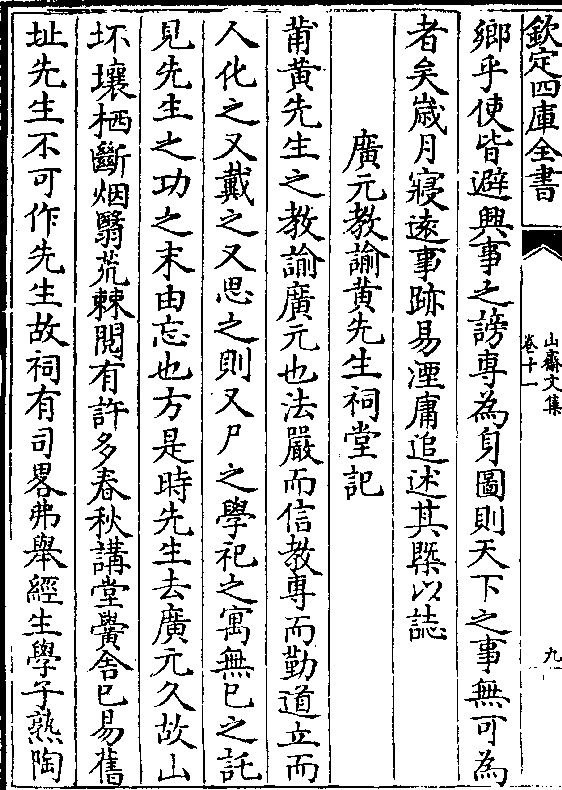 欽定四庫全書
山齋文集
卷十一
九
鄉乎使皆避興事之謗專為身圖則天下之事無可為
者矣歳月寢逺事跡易湮庸追述其槩以誌
廣元教諭黄先生祠堂記
莆黄先生之教諭廣元也法嚴而信教專而勤道立而
人化之又戴之又思之則又尸之學祀之寓無已之託
見先生之功之末由忘也方是時先生去廣元久故山
坏壤栖斷烟翳荒棘閲有許多春秋講堂黌舍已易舊
址先生不可作先生故祠有司畧弗舉經生學子熟陶